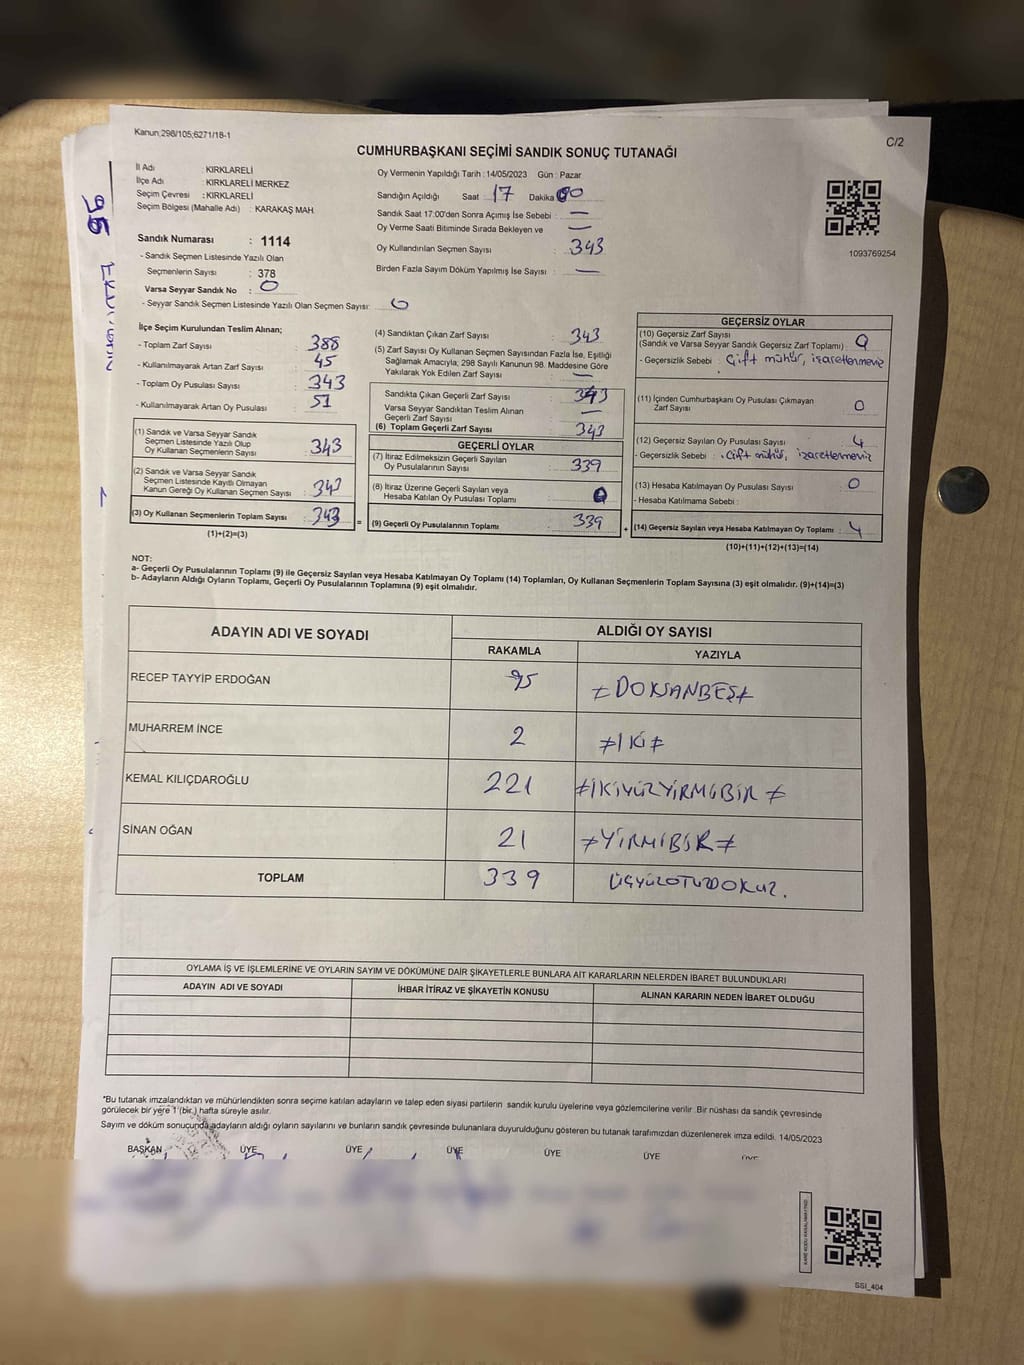 Kanun;298/105;6271/18-1
C/2
CUMHURBAŞKANI SEÇİMİ SANDIK SONUÇ TUTANAĞI
İl Adı : KIRKLARELİ
İlçe Adı : KIRKLARELİ MERKEZ
Seçim Çevresi : KIRKLARELİ
Seçim Bölgesi (Mahalle Adı) : KARAKAŞ MAH.
Oy Vermenin Yapıldığı Tarih : 14/05/2023 Gün : Pazar
Sandığın Açıldığı Saat : 17 Dakika
Sandık Saat 17:00'den Sonra Açımış İse Sebebi : —
Oy Verme Saati Bitiminde Sırada Bekleyen ve : —
Oy Kullandırılan Seçmen Sayısı : 343
Birden Fazla Sayım Döküm Yapılmış İse Sayısı : —
1093769254
Sandık Numarası : 1114
- Sandık Seçmen Listesinde Yazılı Olan
Seçmenlerin Sayısı : 378
Varsa Seyyar Sandık No : 0
- Seyyar Sandık Seçmen Listesinde Yazılı Olan Seçmen Sayısı: 0
İlçe Seçim Kurulundan Teslim Alınan;
- Toplam Zarf Sayısı : 388
- Kullanılmayarak Artan Zarf Sayısı : 45
- Toplam Oy Pusulası Sayısı : 343
- Kullanılmayarak Artan Oy Pusulası : 51
(1) Sandık ve Varsa Seyyar Sandık
Seçmen Listesinde Yazılı Olup
Oy Kullanan Seçmenlerin Sayısı : 343
(2) Sandık ve Varsa Seyyar Sandık
Seçmen Listesinde Kayıtlı Olmayan
Kanun Gereği Oy Kullanan Seçmen Sayısı : 343
(3) Oy Kullanan Seçmenlerin Toplam Sayısı : 343
(1)+(2)=(3)
=
(4) Sandıktan Çıkan Zarf Sayısı : 343
(5) Zarf Sayısı Oy Kullanan Seçmen Sayısından Fazla İse, Eşitliği
Sağlamak Amacıyla; 298 Sayılı Kanunun 98. Maddesine Göre
Yakılarak Yok Edilen Zarf Sayısı : —
Sandıkta Çıkan Geçerli Zarf Sayısı : 343
Varsa Seyyar Sandıktan Teslim Alınan
Geçerli Zarf Sayısı : —
(6) Toplam Geçerli Zarf Sayısı : 343
GEÇERLİ OYLAR
(7) İtiraz Edilmeksizin Geçerli Sayılan
Oy Pusulalarının Sayısı : 339
(8) İtiraz Üzerine Geçerli Sayılan veya
Hesaba Katılan Oy Pusulası Toplamı : 0
(9) Geçerli Oy Pusulalarının Toplamı : 339
+
GEÇERSİZ OYLAR
(10) Geçersiz Zarf Sayısı
(Sandık ve Varsa Seyyar Sandık Geçersiz Zarf Toplamı) :
- Geçersizlik Sebebi : Çift mühür, işaretlenmemiş
(11) İçinden Cumhurbaşkanı Oy Pusulası Çıkmayan
Zarf Sayısı : 0
(12) Geçersiz Sayılan Oy Pusulası Sayısı : 4
- Geçersizlik Sebebi : Çift mühür, işaretlenmemiş
(13) Hesaba Katılmayan Oy Pusulası Sayısı : 0
- Hesaba Katılmama Sebebi :
(14) Geçersiz Sayılan veya Hesaba Katılmayan Oy Toplamı : 4
(10)+(11)+(12)+(13)=(14)
NOT:
a- Geçerli Oy Pusulalarının Toplamı (9) ile Geçersiz Sayılan veya Hesaba Katılmayan Oy Toplamı (14) Toplamları, Oy Kullanan Seçmenlerin Toplam Sayısına (3) eşit olmalıdır. (9)+(14)=(3)
b- Adayların Aldığı Oyların Toplamı, Geçerli Oy Pusulalarının Toplamına (9) eşit olmalıdır.
ADAYIN ADI VE SOYADI ALDIĞI OY SAYISI
RAKAMLA YAZIYLA
RECEP TAYYİP ERDOĞAN 95 ≠DOKSANBEŞ≠
MUHARREM İNCE 2 ≠İKİ≠
KEMAL KILIÇDAROĞLU 221 ≠İKİYÜZYİRMİBİR≠
SİNAN OĞAN 21 ≠YİRMİBİR≠
TOPLAM 339 ÜÇYÜZOTUZDOKUZ.
OYLAMA İŞ VE İŞLEMLERİNE VE OYLARIN SAYIM VE DÖKÜMÜNE DAİR ŞİKAYETLERLE BUNLARA AİT KARARLARIN NELERDEN İBARET BULUNDUKLARI
ADAYIN ADI VE SOYADI İHBAR İTİRAZ VE ŞİKAYETİN KONUSU ALINAN KARARIN NEDEN İBARET OLDUĞU
*Bu tutanak imzalandıktan ve mühürlendikten sonra seçime katılan adayların ve talep eden siyasi partilerin sandık kurulu üyelerine veya gözlemcilerine verilir. Bir nüshası da sandık çevresinde
görülecek bir yere 1 (bir) hafta süreyle asılır.
Sayım ve döküm sonucunda adayların aldığı oyların sayılarını ve bunların sandık çevresinde bulunanlara duyurulduğunu gösteren bu tutanak tarafımızdan düzenlenerek imza edildi. 14/05/2023
BAŞKAN ÜYE ÜYE ÜYE ÜYE ÜYE
SSI_404